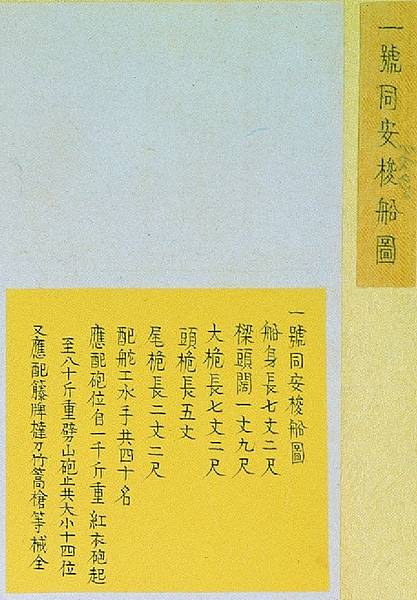 一號同安梭船圖
一號同安梭船圖
船身長七丈二尺
樑頭闊一丈九尺
大桅長七丈二尺
頭桅長五丈
尾桅長二丈二尺
配舵工水手共四十名
應配砲位自一千斤重紅衣砲起
至八十斤重劈山砲止共大小十四位
又應配籐牌撻刀竹篙槍等械全